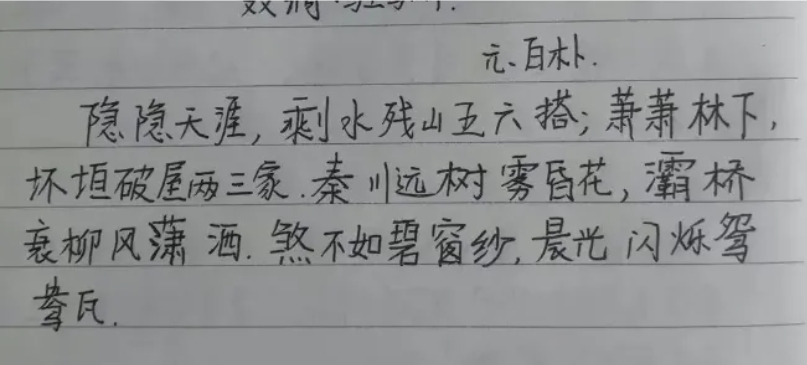 元.百朴.
隐隐天涯,剩水残山五六搭;萧萧林下,
坏垣破屋两三家.秦川远树雾昏花,灞桥
衰柳风潇洒.煞不如碧窗纱,晨光闪烁鸳
鸯瓦.